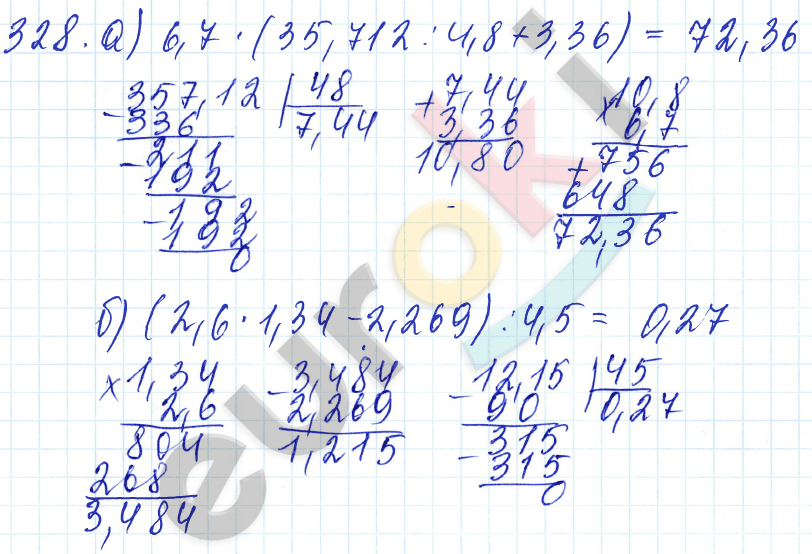 328. а) 6,7 · (35,712 : 4,8 + 3,36) = 72,36
357,12 | 48
- 336 7,44
- 211
192
- 192
192
0
+ 7,44
3,36
10,80
× 10,8
6,7
+ 756
648
72,36
б) (2,6 · 1,34 - 2,269) : 4,5 = 0,27
× 1,34
2,6
804
268
3,484
- 3,484
2,269
1,215
- 12,15 | 45
90 0,27
- 315
315
0
euroki